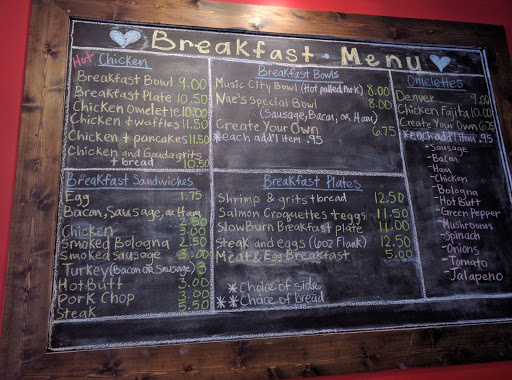 Breakfast Menu
Hot Chicken
Breakfast Bowl 9.00
Breakfast Plate 10.50
Chicken Omelette 10.00
Chicken + waffles 11.50
Chicken + pancakes 11.50
Chicken and Gouda grits
+ bread 10.50
Breakfast Sandwiches
Egg 1.75
Bacon, Sausage, or Ham
2.50
Chicken 3.00
Smoked Bologna 2.50
Smoked sausage 3.00
Turkey (Bacon or Sausage) 3
Hot Butt 3.00
Pork Chop 3.00
Steak 5.50
Breakfast Bowls
Music City Bowl (Hot pulled Pork) 8.00
Nae's Special Bowl 8.00
(Sausage, Bacon, or Ham)
Create Your Own 6.75
*each add'l item .95
Breakfast Plates
Shrimp & grits + bread 12.50
Salmon Croquettes + eggs 11.50
Slow Burn Breakfast plate 11.00
Steak and eggs (6oz Flank) 12.50
Meat & Egg Breakfast 5.00
* Choice of side
** Choice of bread
Omelettes
Denver 9.00
Chicken Fajita 10.00
Create Your Own
*each add'l item .95
-Sausage
-Bacon
-Ham
-Chicken
-Bologna
-Hot Butt
-Green Pepper
-Mushrooms
-Spinach
-Onions
-Tomato
-Jalapeno